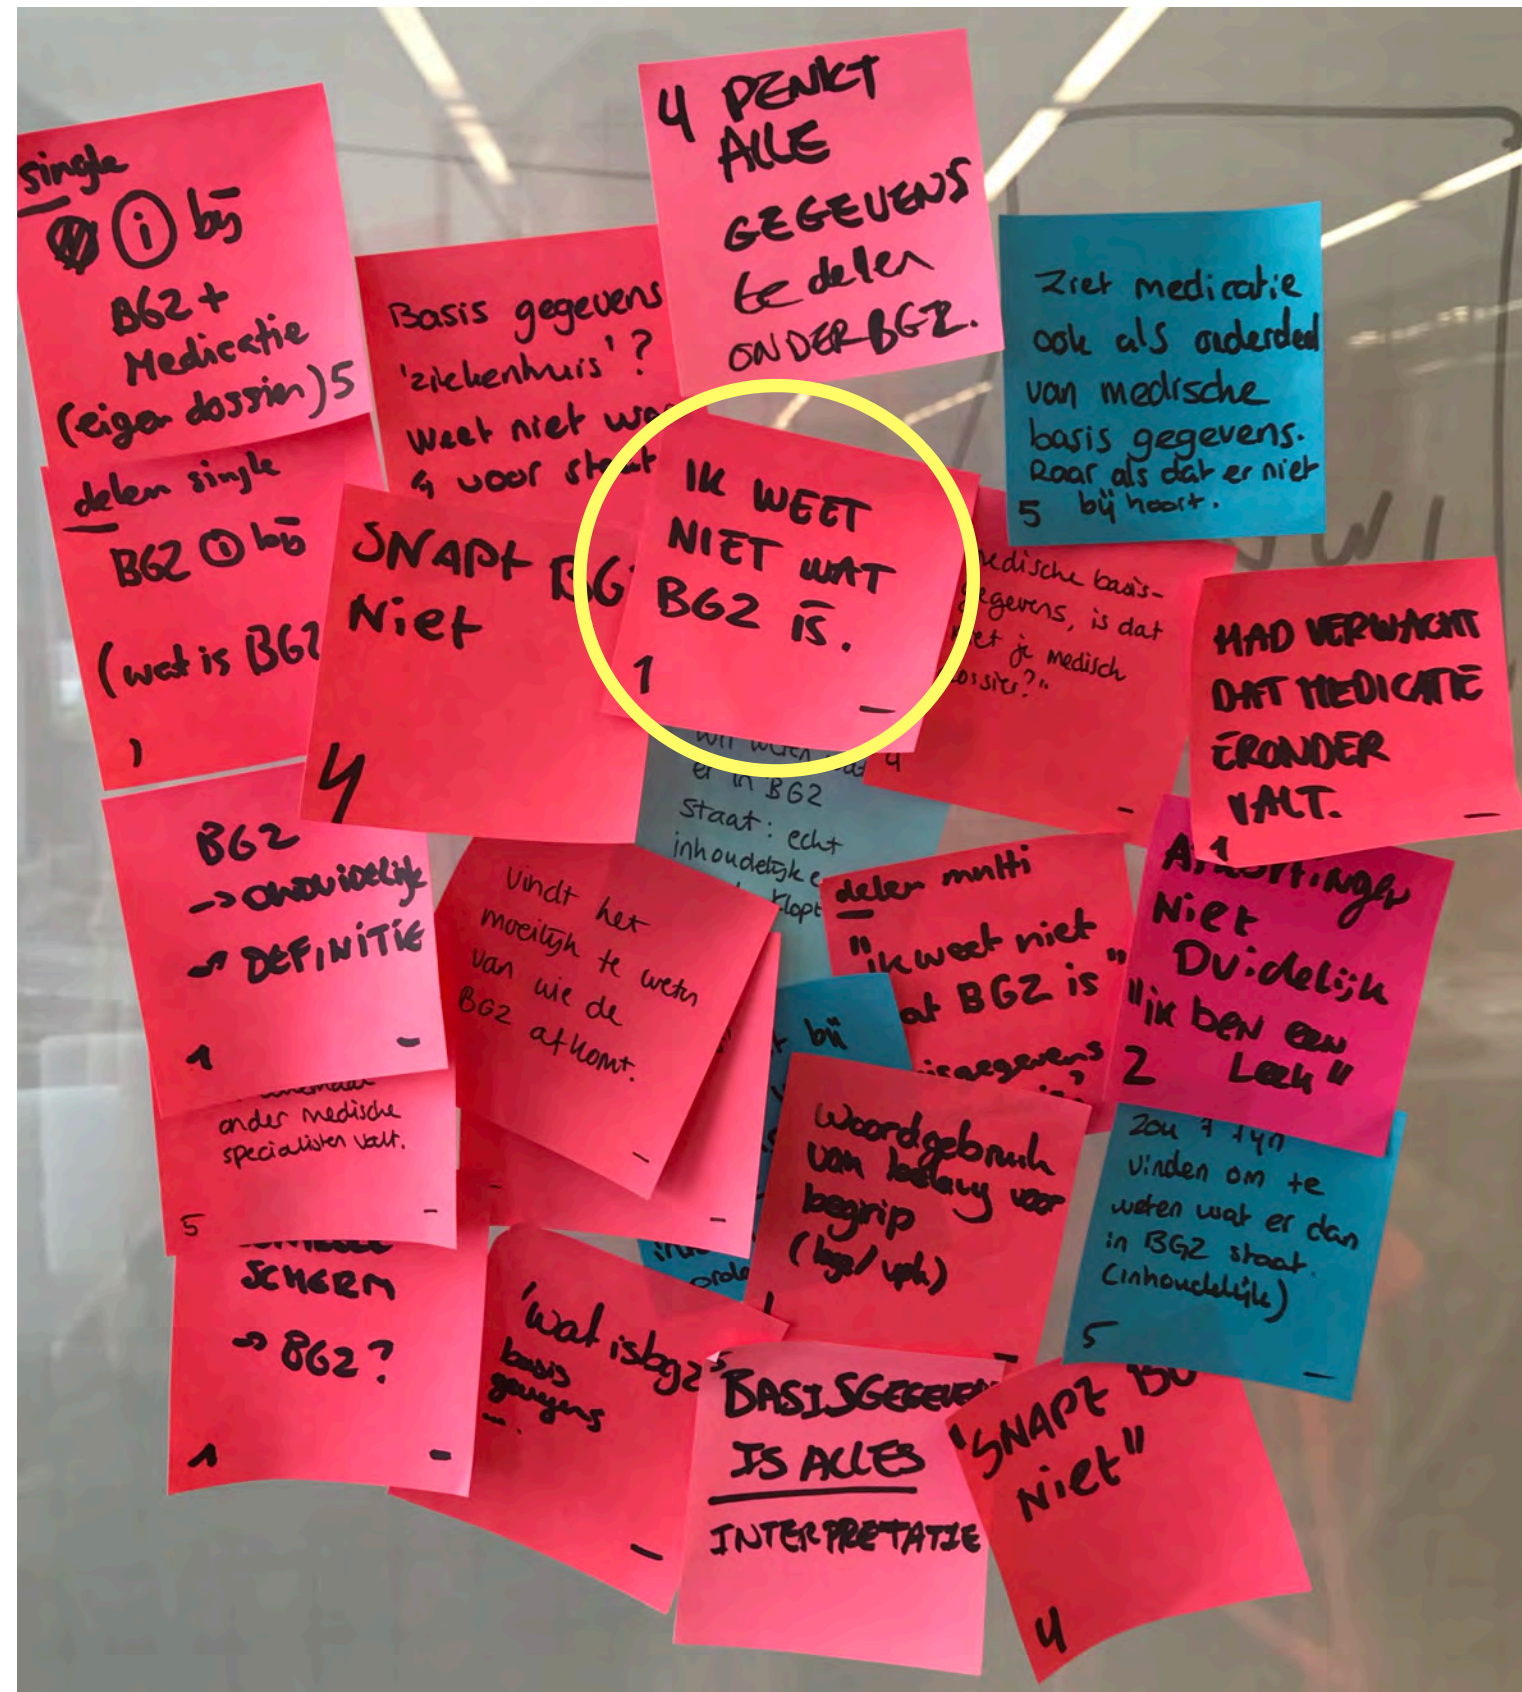 single
i bij
BGZ +
Medicatie
(eigen dossier) 5
Basis gegevens
'ziekenhuis'?
Weet niet
voor staat
4 DENKT
ALLE
GEGEVENS
te delen
ONDER BGZ.
Ziet medicatie
ook als onderdeel
van medische
basis gegevens.
Raar als dat er niet
5 bij hoort.
delen single
BGZ i bij
(wat is BGZ
1
SNAPT BG
Niet
4
IK WEET
NIET WAT
BGZ IS.
1 –
medische basis-
gegevens, is dat
niet je medisch
dossier?"
4 –
HAD VERWACHT
DAT MEDICATIE
ERONDER
VALT.
1 –
er in BGZ
staat: echt
inhoudelijke
klopt
BGZ
-> ONDUIDELIJK
-> DEFINITIE
1 –
Vindt het
moeilijk te weten
van wie de
BGZ afkomt.
–
delen multi
"ik weet niet
wat BGZ is"
Afkortingen
Niet
Duidelijk
"ik ben een
2 Leek"
bij
onder medische
specialisten valt.
5 –
Woordgebruik
van belang voor
begrip
–
vinden om te
weten wat er dan
in BGZ staat.
(inhoudelijk)
5 –
SCHERM
-> BGZ?
1 –
'wat is bgz'
basis
–
BASISGEGEVEN
IS ALLES
INTERPRETATIE
"SNAPT
Niet"
4